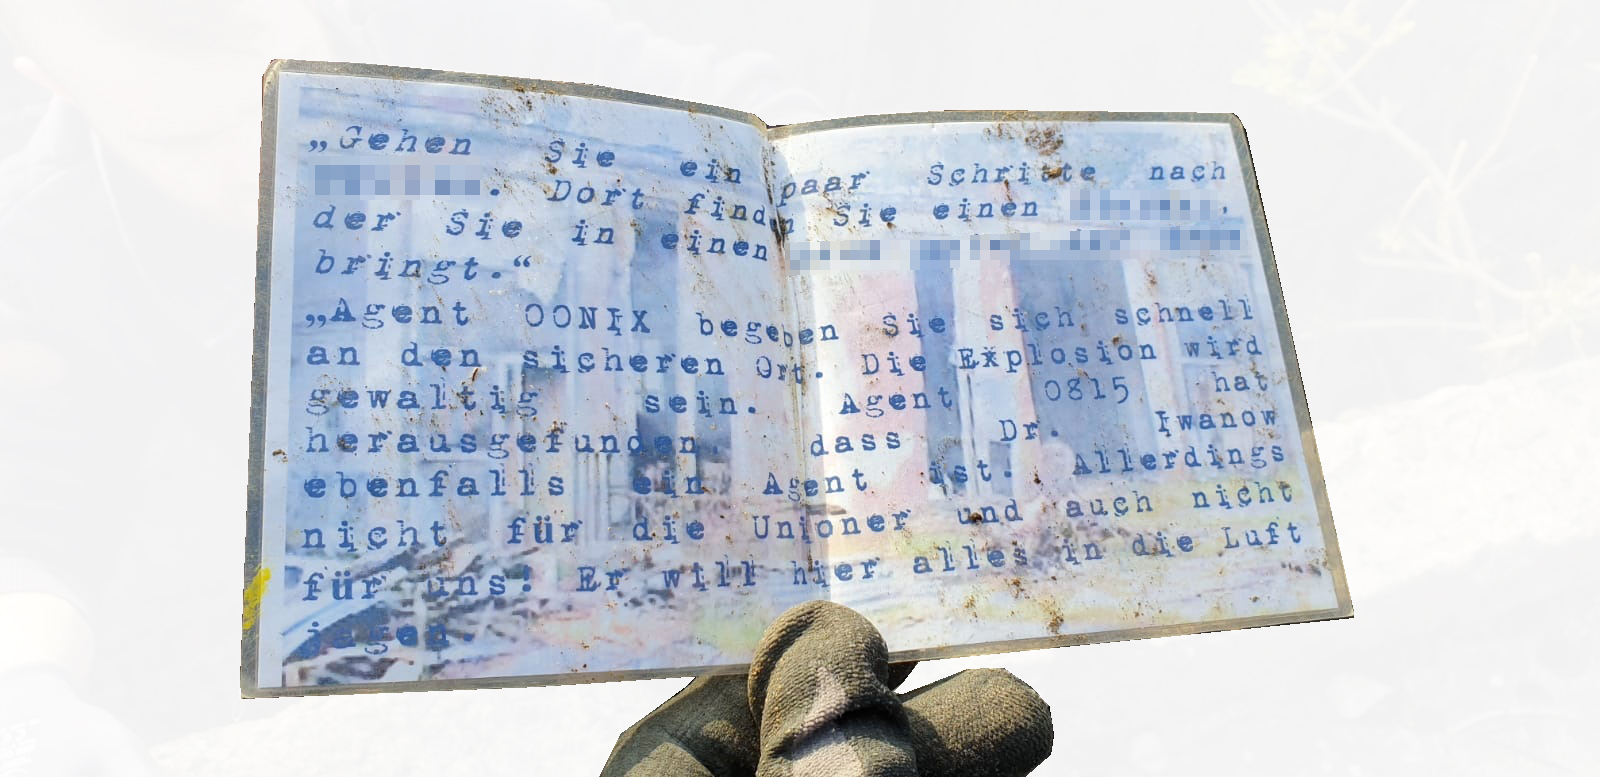 „Gehen Sie ein paar Schritte nach
. Dort finden Sie einen ,
der Sie in einen
bringt.“
„Agent OONIX begeben Sie sich schnell
an den sicheren Ort. Die Explosion wird
gewaltig sein. Agent 0815 hat
herausgefunden, dass Dr. Iwanow
ebenfalls ein Agent ist. Allerdings
nicht für die Unioner und auch nicht
für uns! Er will hier alles in die Luft
jagen.